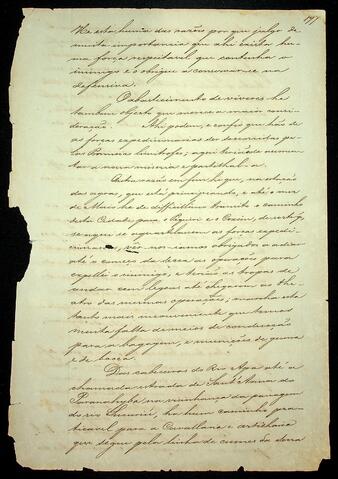 197
He esta huma das razões por que julgo de
muita importancia que ahi exista hu-
ma força respeitavel que contenha o
inimigo e o obrigue a conservar-se na
defensiva.
O abastecimento de viveres he
tambem objecto que merece a maior consi-
deração. Ahi podem, e confio que hão de
as forças expedicionarias ser
Provincias limitrofes, aqui
tar a nova miseria e partilhal-a.
Outra razão em fim he que, na estação
das agoas, que está principiando, e até o mez
de Maio he de difficilimo transito o caminho
desta Cidade para o Piquiri e o Coxim, de sorte q
se aqui se agruparem as forças expedi-
cionarias, ver-nos-iamos obrigados a adiar
até o começo da secca as operações para
expellir o inimigo, e terião as tropas de
andar cem legoas até chegarem ao the-
atro das mesmas operações; marcha esta
tanto mais inconveniente que temos
muita falta de meios de conducção
para a bagagem, e munições de guerra
e de boca.
Das cabeceiras do Rio Apa até a
chamada estrada de Sant'Anna do
Paranahyba na visinhança da passagem
do rio, ha bom caminho pra-
ticavel para a Cavallaria e artilharia
que segue pela linha de cumes da serra